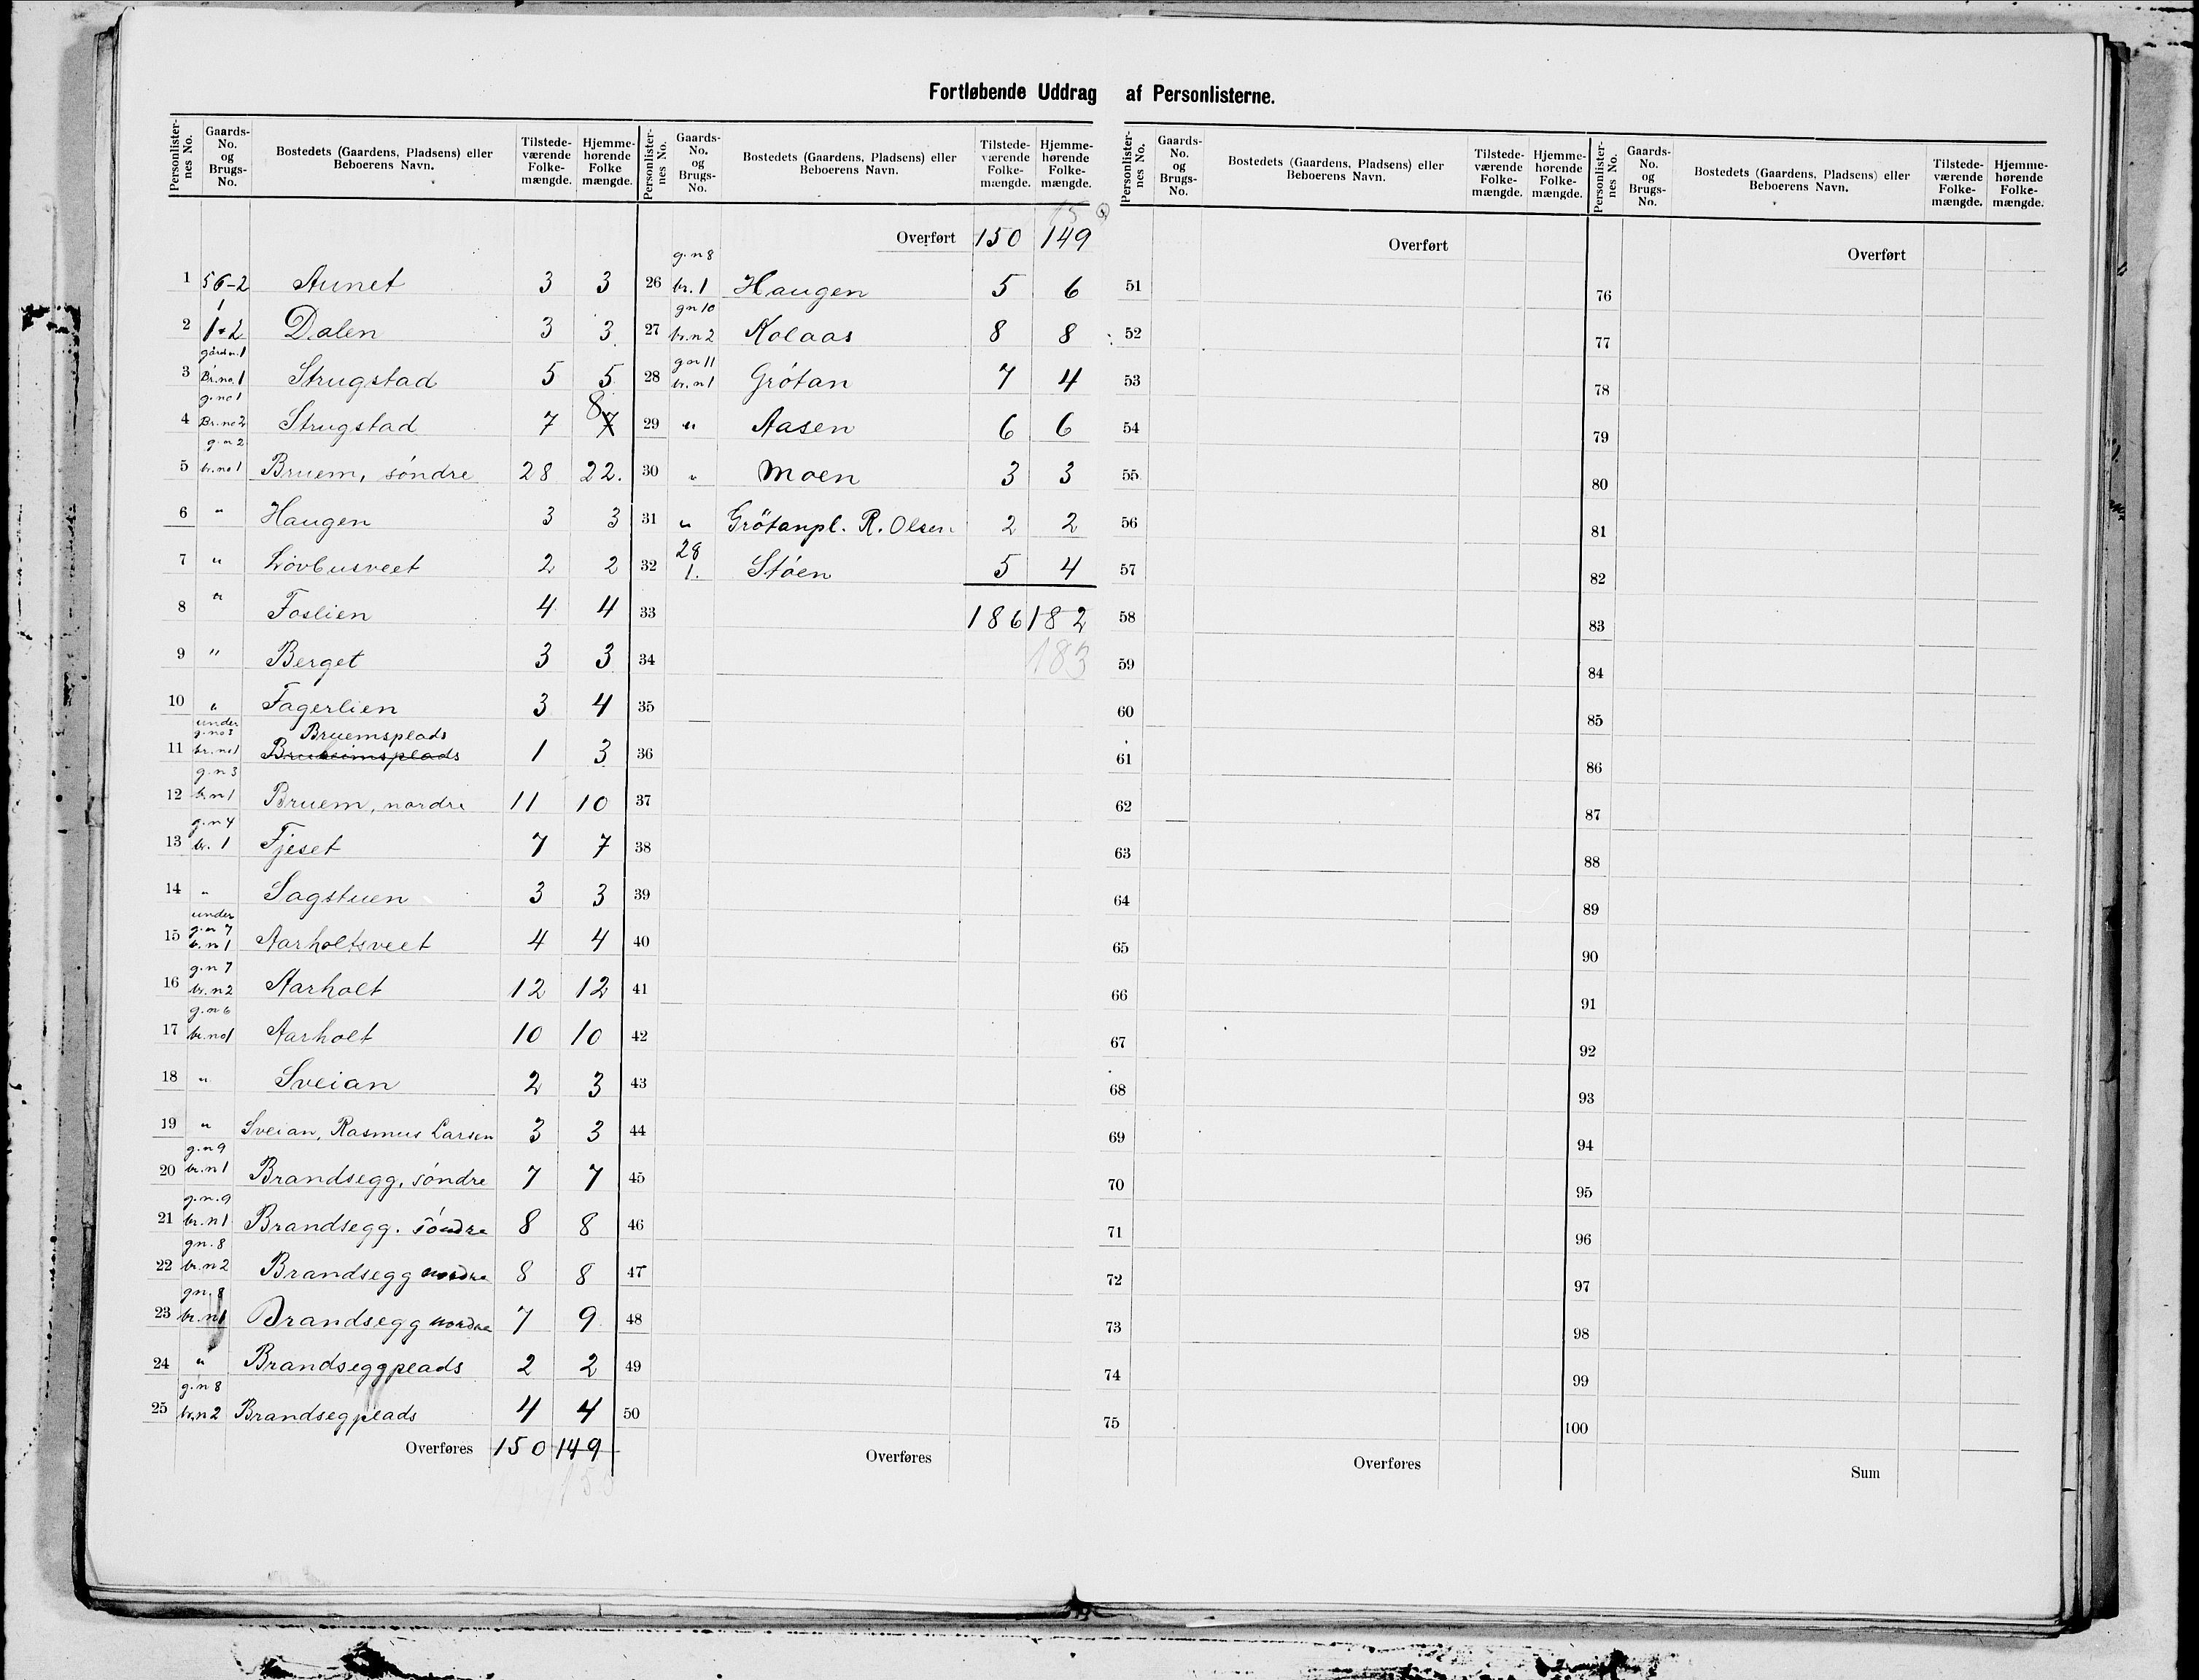 Fortløbende Uddrag af Personlisterne.
Personlisternes No. | Gaards-No. og Brugs-No. | Bostedets (Gaardens, Pladsens) eller Beboerens Navn. | Tilstede-værende Folke-mængde. | Hjemme-hørende Folke mængde.
1 | 56-2 | Aunet | 3 | 3
2 | 1 1+2 | Dalen | 3 | 3
3 | gårdn. 1 Br.no. 1 | Strugstad | 5 | 5
4 | g.no 1 Br.no 2 | Strugstad | 7 | 7 8
5 | g.n 2 br.no 1 | Bruem, söndre | 28 | 22.
6 | " | Haugen | 3 | 3
7 | " | Lövbusveet | 2 | 2
8 | " | Foslien | 4 | 4
9 | " | Berget | 3 | 3
10 | " | Fagerlien | 3 | 4
11 | under g.no 3 br.no 1 | Bruemsplads | 1 | 3
12 | g.n 3 br.n 1 | Bruem, nordre | 11 | 10
13 | g.n 4 br. 1 | Fjeset | 7 | 7
14 | " | Sagstuen | 3 | 3
15 | under g.n 7 b.n 1 | Aarholtsveet | 4 | 4
16 | g.n 7 br.n 2 | Aarholt | 12 | 12
17 | g.n 6 br.no 1 | Aarholt | 10 | 10
18 | " | Sveian | 2 | 3
19 | " | Sveian, Rasmus Larsen | 3 | 3
20 | g.n 9 br.n 1 | Brandsegg, söndre | 7 | 7
21 | g.n. 9 br.n 1 | Brandsegg. söndre | 8 | 8
22 | gn. 8 br.n 2 | Brandsegg nordre | 8 | 8
23 | gn. 8 br.n 1 | Brandsegg nordre | 7 | 9
24 | " | Brandseggplads | 2 | 2
25 | g.n 8 br.n 2 | Brandsegplads | 4 | 4
Overføres | 150 | 149
150
Personlisternes No. | Gaards-No. og Brugs-No. | Bostedets (Gaardens, Pladsens) eller Beboerens Navn. | Tilstede-værende Folke-mængde. | Hjemme-hørende Folke-mængde.
Overført | 150 | 149
26 | g.n 8 br. 1 | Haugen | 5 | 6
27 | gn 10 br.n 2 | Kolaas | 8 | 8
28 | gn 11 br.n 1 | Grötan | 7 | 4
29 | " | Aasen | 6 | 6
30 | " | Moen | 3 | 3
31 | " | Grötanpl. R. Olsen | 2 | 2
32 | 28 1. | Stöen | 5 | 4
33 | 186 | 182
34 | 183
35
36
37
38
39
40
41
42
43
44
45
46
47
48
49
50
Overføres
Personlisternes No. | Gaards-No. og Brugs-No. | Bostedets (Gaardens, Pladsens) eller Beboerens Navn. | Tilstede-værende Folke-mængde. | Hjemme-hørende Folke-mængde.
Overført
51
52
53
54
55
56
57
58
59
60
61
62
63
64
65
66
67
68
69
70
71
72
73
74
75
Overføres
Personlisternes No. | Gaards-No. og Brugs-No. | Bostedets (Gaardens, Pladsens) eller Beboerens Navn. | Tilstede-værende Folke-mængde. | Hjemme-hørende Folke-mængde.
Overført
76
77
78
79
80
81
82
83
84
85
86
87
88
89
90
91
92
93
94
95
96
97
98
99
100
Sum